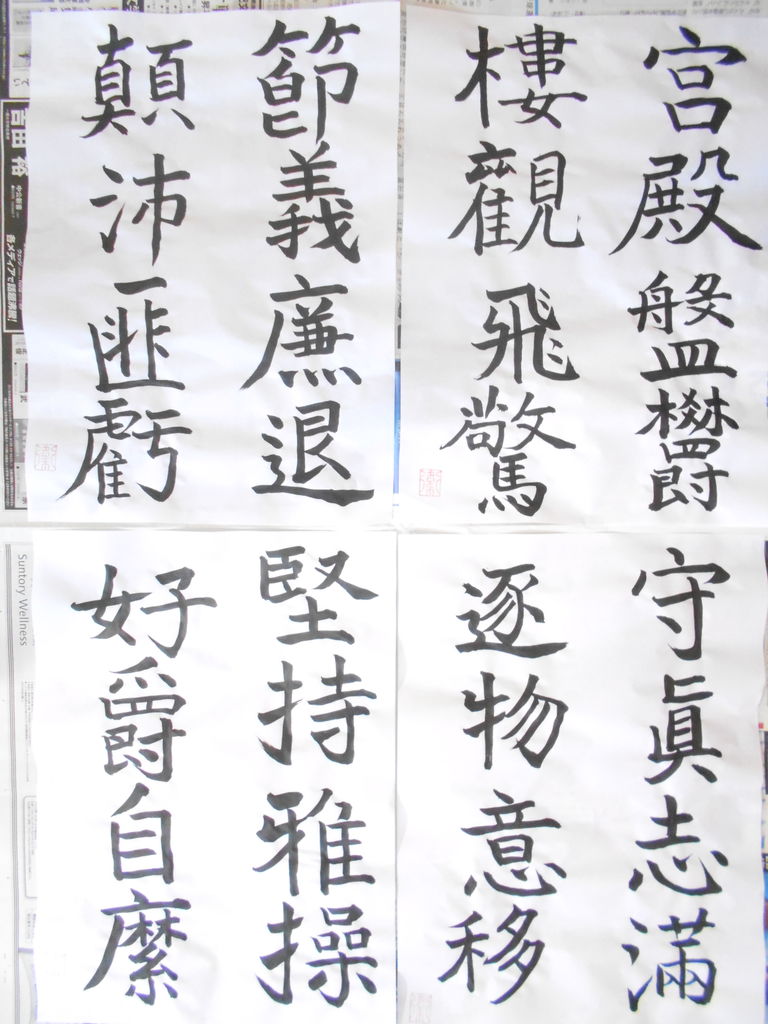 宮殿盤欝
樓觀飛驚
節義廉退
顛沛匪虧
守眞志滿
逐物意移
堅持雅操
好爵自縻
Suntory Wellness
吉田 裕